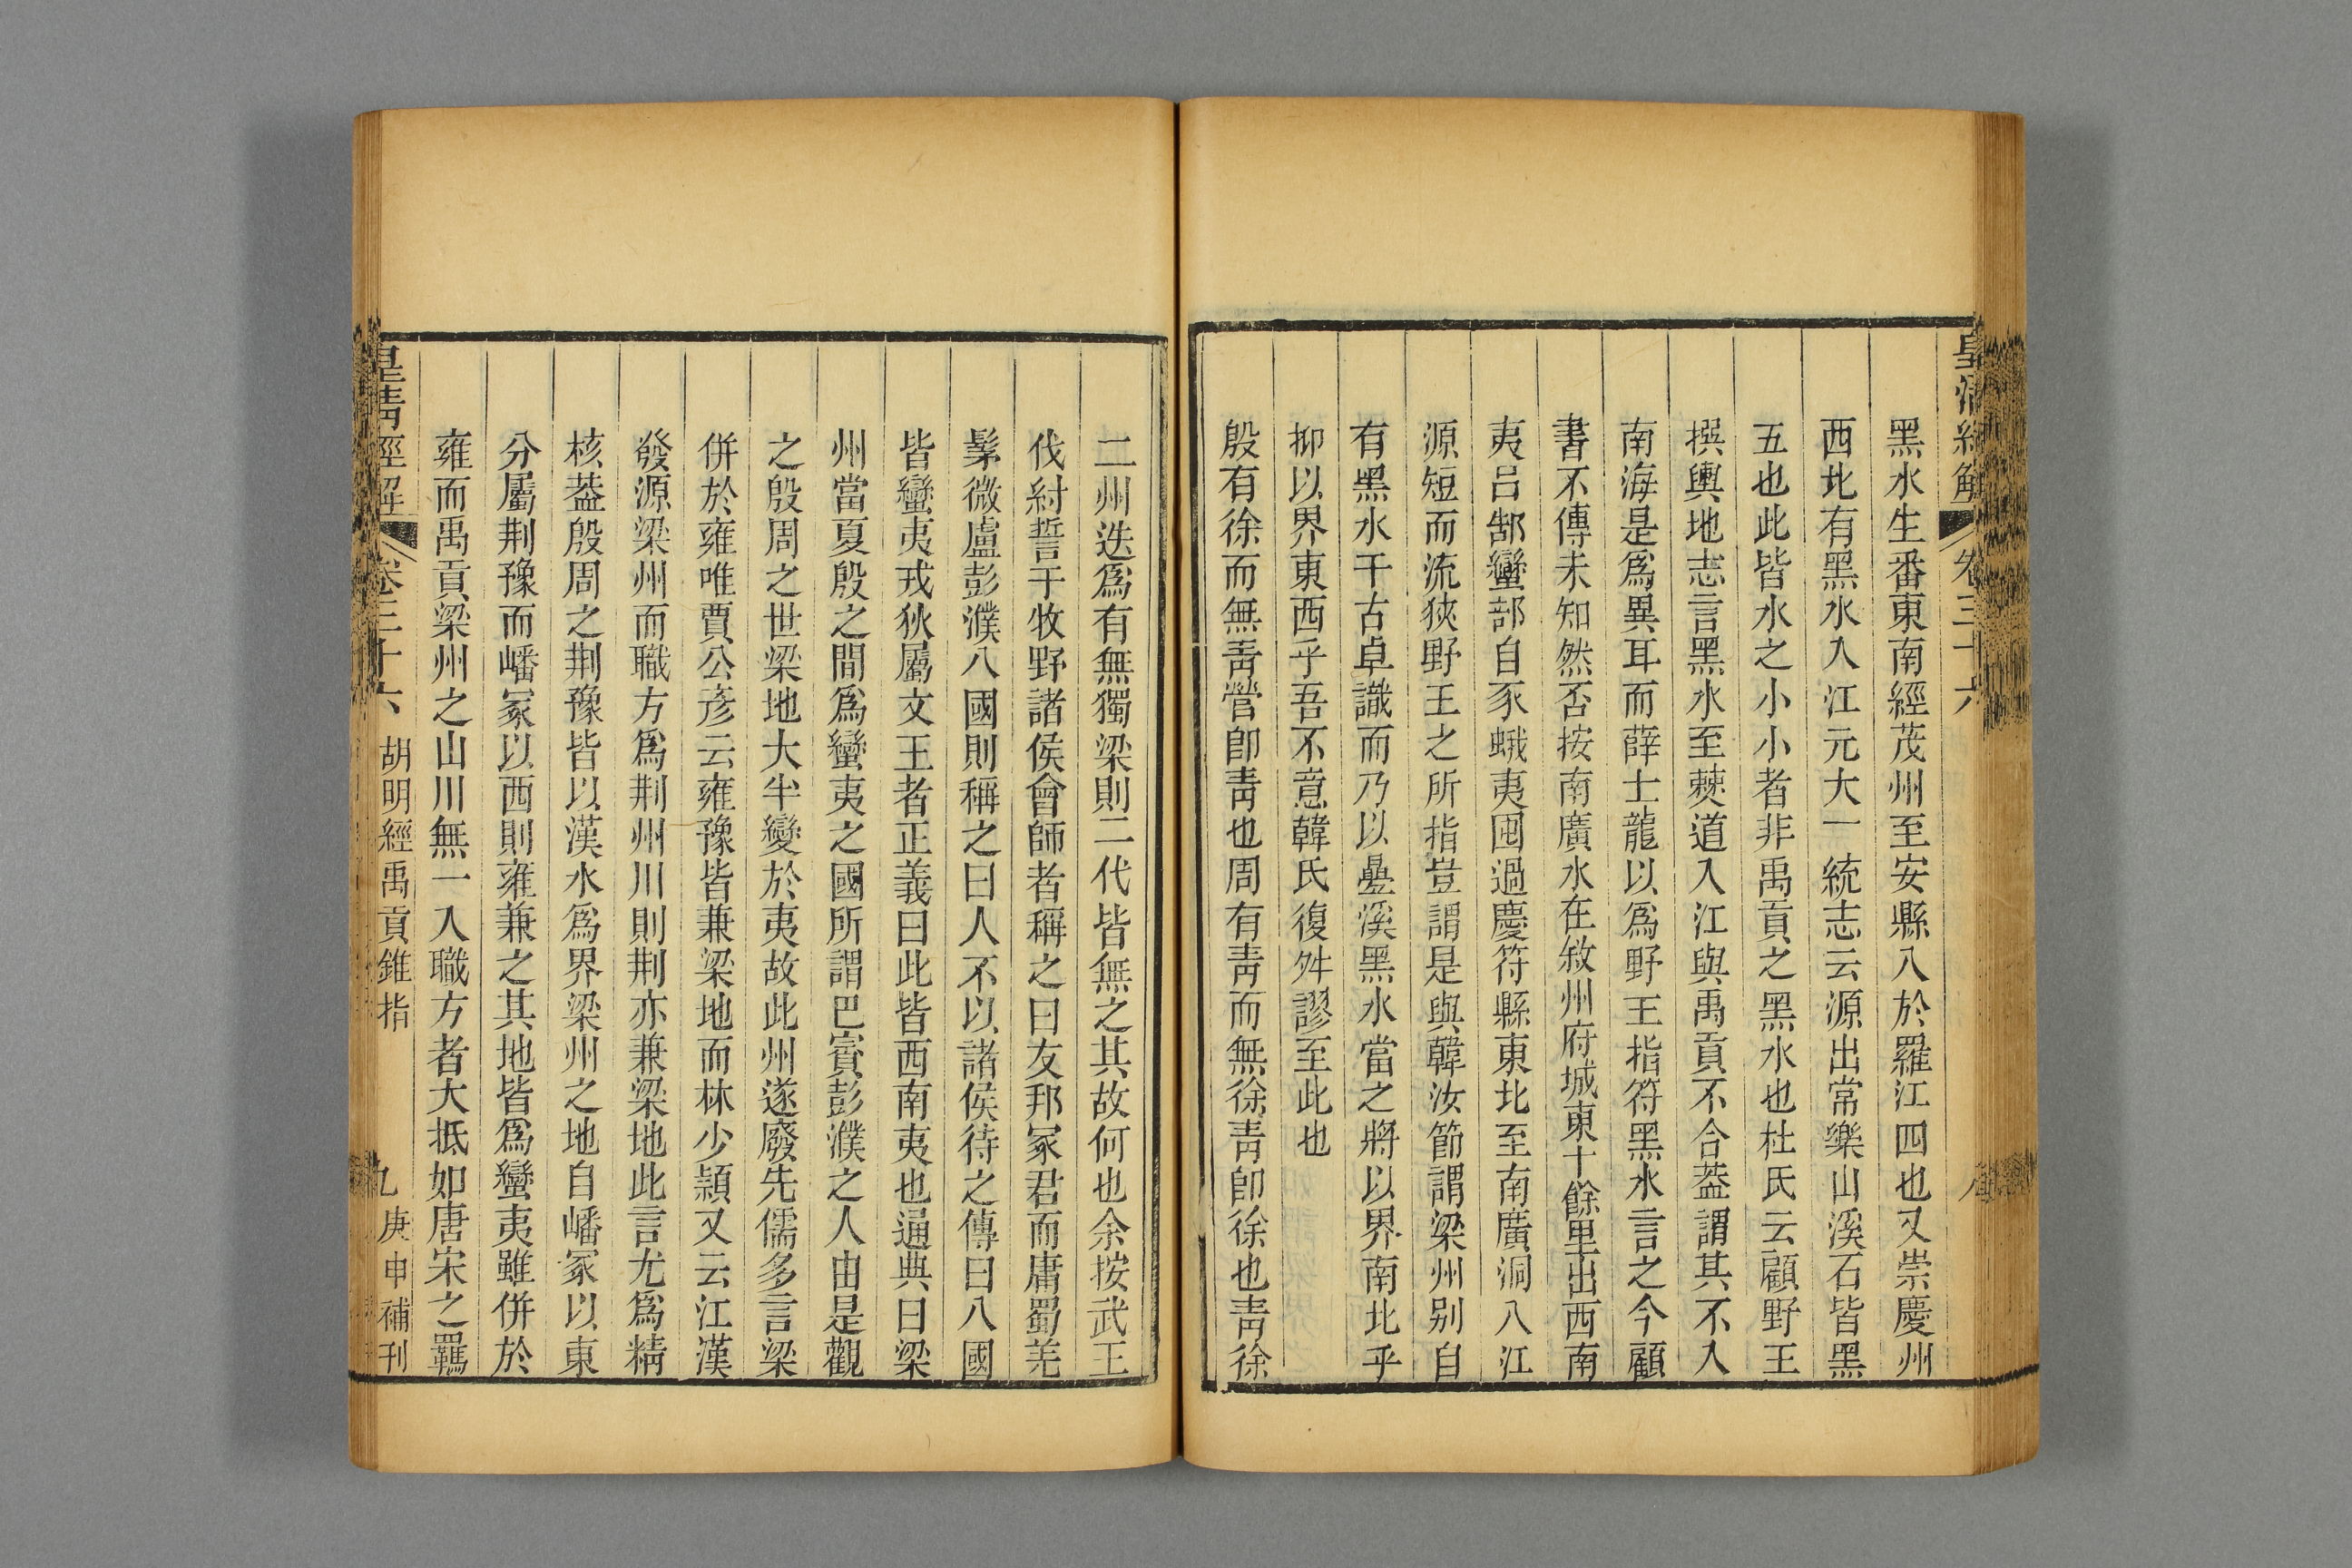 皇清經解 卷三十六
黑水生番東南經茂州至安縣入於羅江四也又崇慶州
西北有黑水入江元大一統志云源出常樂山溪石皆黑
五也此皆水之小小者非禹貢之黑水也杜氏云顧野王
撰輿地志言黑水至僰道入江與禹貢不合葢謂其不入
南海是爲異耳而薛士龍以爲野王指符黑水言之今顧
書不傳未知然否按南廣水在敘州府城東十餘里出西南
夷呂部蠻部自豕蛾夷囤過慶符縣東北至南廣洞入江
源短而流狹野王之所指豈謂是與韓汝節謂梁州别自
有黑水千古卓識而乃以曡溪黑水當之將以界南北乎
抑以界東西乎吾不意韓氏復舛謬至此也
殷有徐而無靑營卽靑也周有靑而無徐靑卽徐也靑徐
二州迭爲有無獨梁則二代皆無之其故何也余按武王
伐紂誓于牧野諸侯會師者稱之曰友邦冢君而庸蜀羌
髳微盧彭濮八國則稱之曰人不以諸侯待之傳曰八國
皆蠻夷戎狄屬文王者正義曰此皆西南夷也通典曰梁
州當夏殷之間爲蠻夷之國所謂巴賨彭濮之人由是觀
之殷周之世梁地大半變於夷故此州遂廢先儒多言梁
併於雍唯賈公彥云雍豫皆兼梁地而林少穎又云江漢
發源梁州而職方爲荆州川則荆亦兼梁地此言尤爲精
核葢殷周之荆豫皆以漢水爲界梁州之地自嶓冢以東
分屬荆豫而嶓冢以西則雍兼之其地皆爲蠻夷雖併於
雍而禹貢梁州之山川無一入職方者大抵如唐宋之羈
皇清經解 卷三十六 胡明經禹貢錐指 九 庚申補刊